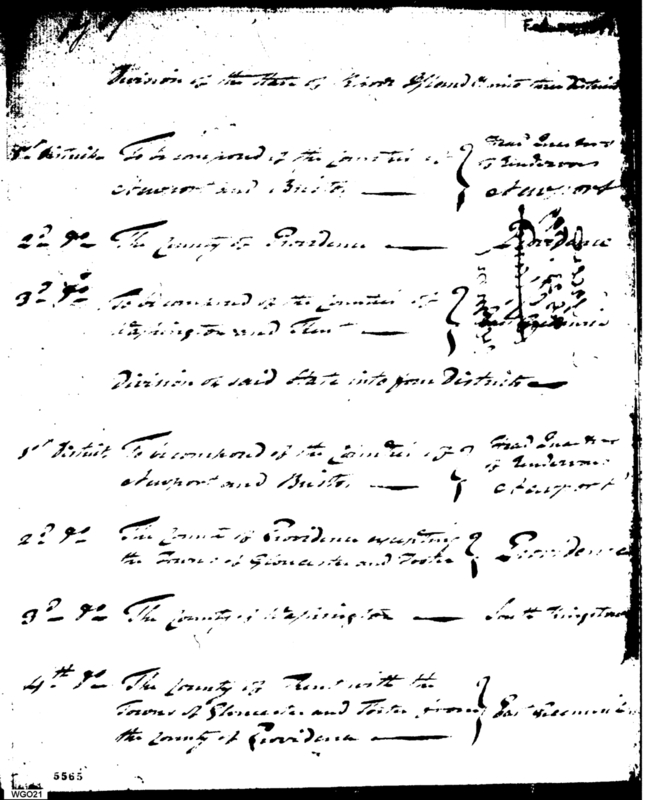 Division of the State of Rhode Island &c into three Districts
1st District To be composed of the Counties of
Newport and Bristol
Head Quarters
of Rendezvous
Newport
2d Do The County of Providence
Providence
3d Do To be composed of the Counties of
Washington and Kent
East Greenwich
Division of said State into four Districts
1st District To be composed of the Counties of
Newport and Bristol
Head Quarters
of Rendezvous
Newport
2d Do The County of Providence excepting
the Towns of Gloucester and Foster
Providence
3d Do The County of Washington
South Kingstown
4th Do The County of Kent with the
Towns of Gloucester and Foster from
the County of Providence
East Greenwich
5565
WGO21